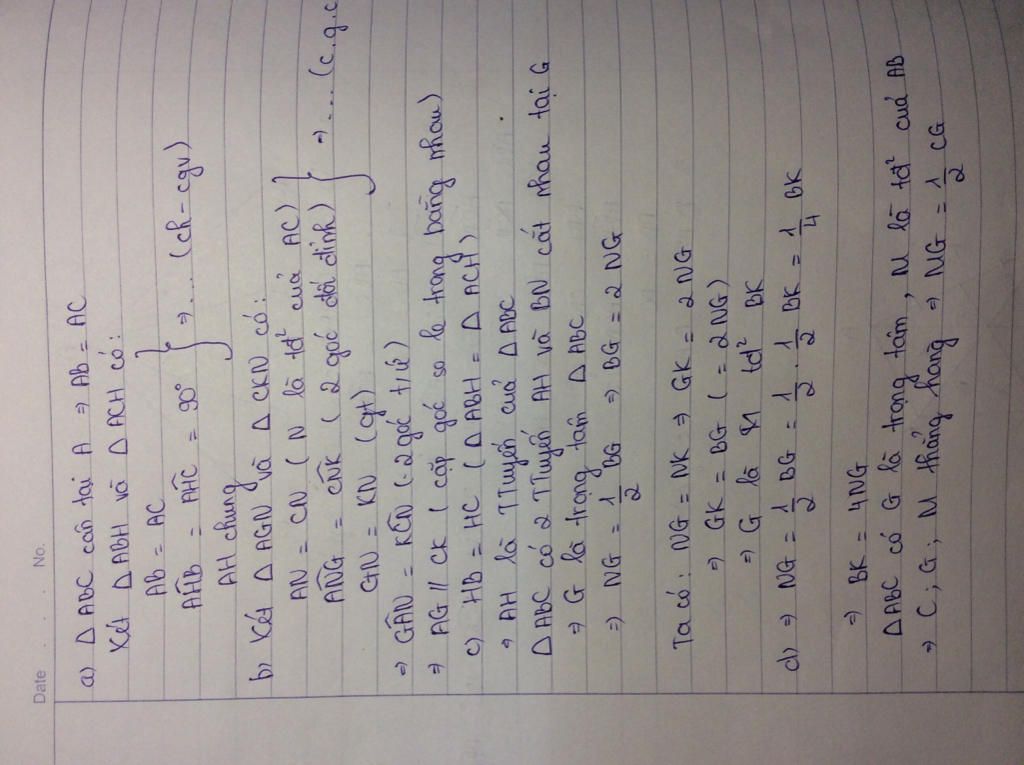 Date . . . No.
a) Δ ABC cân tại A ⇒ AB = AC
Xét Δ ABH và Δ ACH có:
AB = AC
AHB = AHC = 90° } ⇒ ... (ch - cgv)
AH chung
b) Xét Δ AGN và Δ CKN có:
AN = CN ( N là tđ² của AC)
ANG = CNK ( 2 góc đối đỉnh) } ⇒ .... (c.g.c
GN = KN (cgt)
⇒ GAN = KCN ( 2 góc t/ứ)
⇒ AG // CK ( cặp góc so le trong bằng nhau)
c) HB = HC ( Δ ABH = Δ ACH)
⇒ AH là TTuyến của Δ ABC
Δ ABC có 2 TTuyến AH và BN cắt nhau tại G
⇒ G là trọng tâm Δ ABC
⇒ NG = 1/2 BG ⇒ BG = 2 NG
Ta có: NG = NK ⇒ GK = 2 NG
⇒ GK = BG ( = 2NG)
⇒ G là tđ² BK
d) ⇒ NG = 1/2 BG = 1/2 . 1/2 BK = 1/4 BK
⇒ BK = 4NG
Δ ABC có G là trọng tâm, N là tđ² của AB
⇒ C ; G ; N thẳng hàng ⇒ NG = 1/2 CG